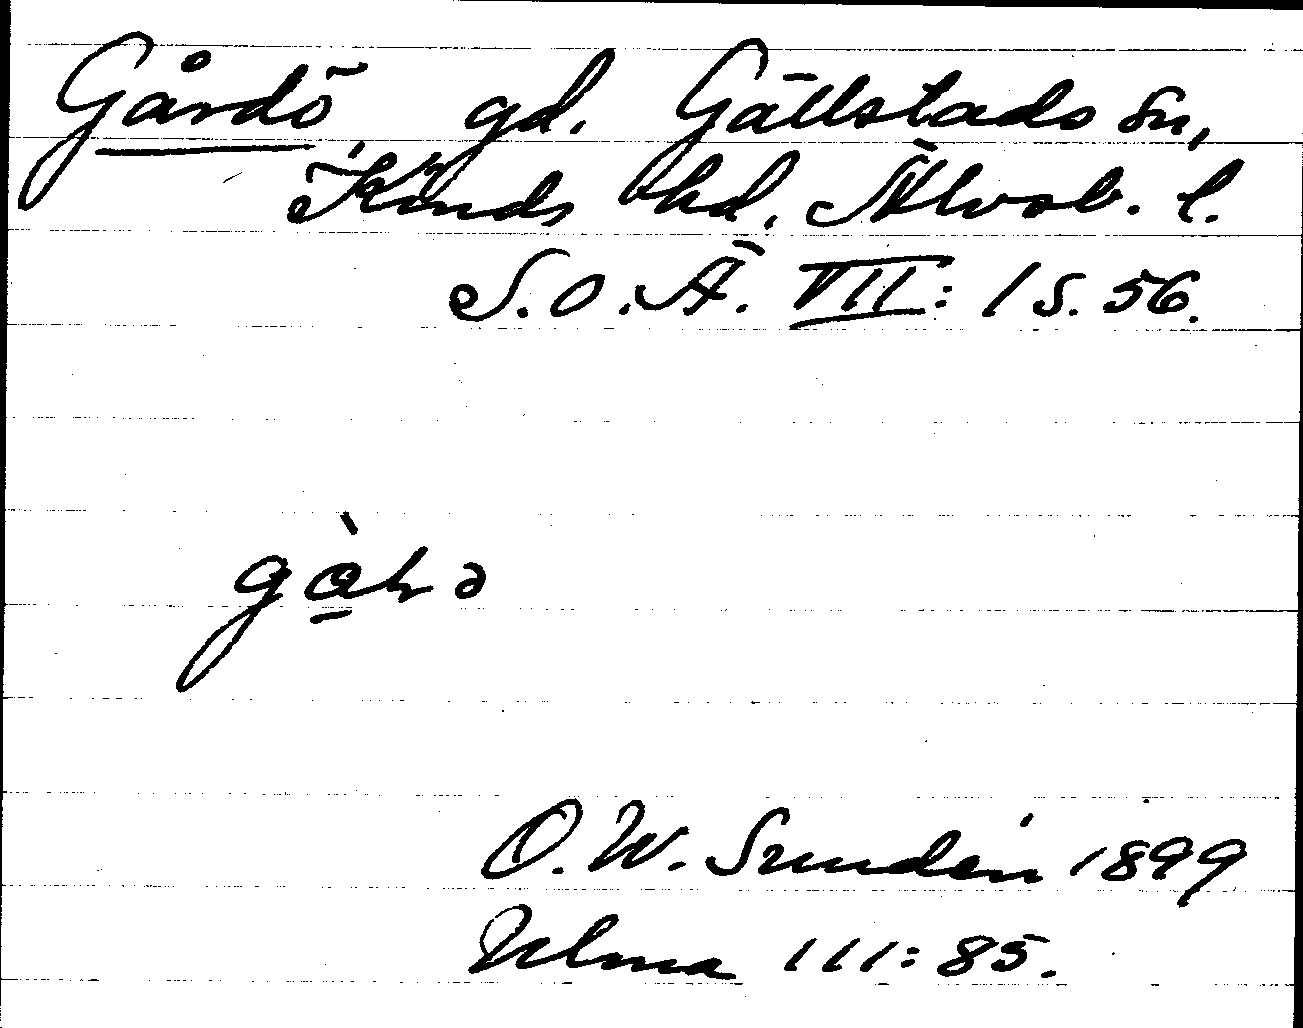 Gårdö, gd. Gällstads sn,
Kinds hd, Älvsb. l.
S.O.Ä. VII: 1 s. 56.
O. W. Sundén 1899
Ulma 111:85.